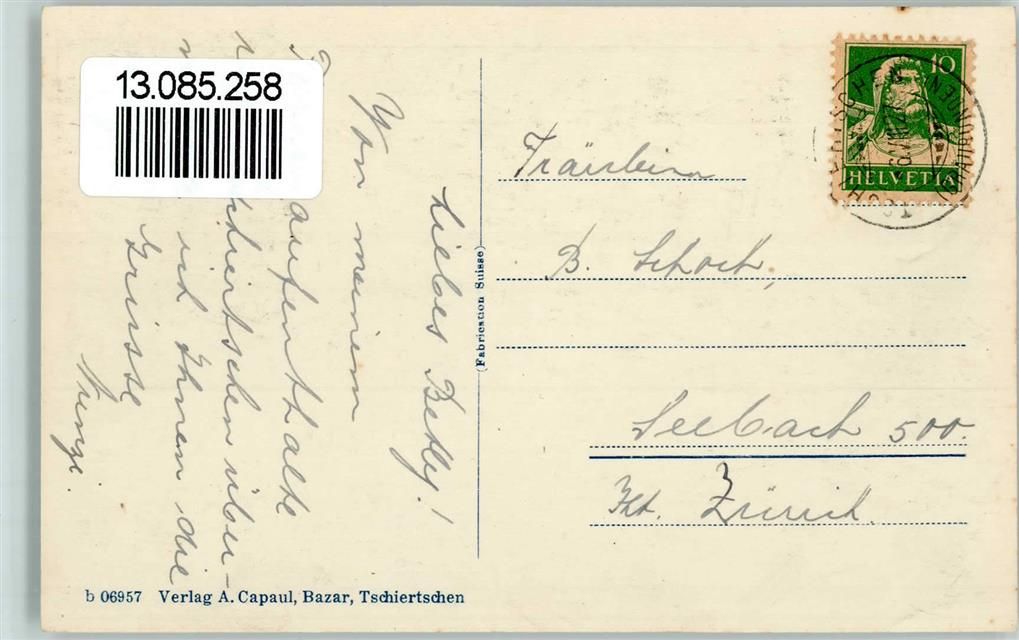 13.085.258
Liebes Betly!
Von meinem
aufenthalte
schiertschen über-
ich Ihnen die
Grüsse
Fräulein
B. Schoch,
Seebach 500.
Kt. Zürich.
10
HELVETIA
(Fabrication Suisse)
b 06957 Verlag A. Capaul, Bazar, Tschiertschen